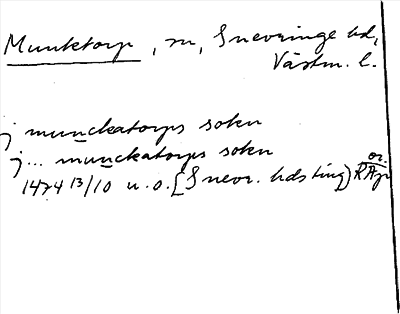 Munktorp, sn, Snevringe hd,
Västm. l.
j munckatorps sokn
j... munckatorps sokn
1474 13/10 u.o. [Snevr. hds ting) or. RAp